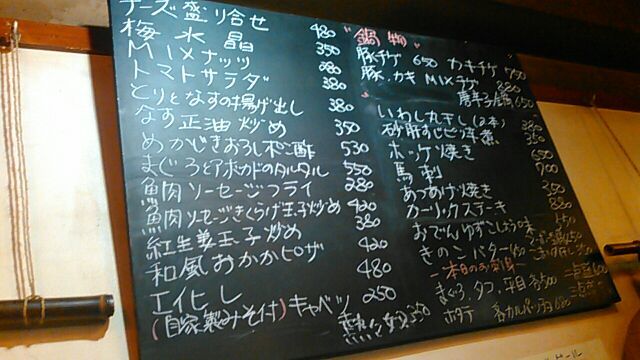 チーズ盛り合せ 480
梅水晶 350
MIXナッツ
トマトサラダ 380
とりとなすの揚げ出し 380
なす正油炒め 350
めかじきおろしポン酢 530
まぐろとアボカドのタルタル 550
魚肉ソーセージフライ 280
魚肉ソーセージきくらげ玉子炒め 420
紅生姜玉子炒め 380
和風おかかピザ 420
エイヒレ 480
(自家製みそ付)キャベツ 250
"鍋物"
豚チゲ 650 カキチゲ
豚、カキMIXチゲ 880
650
いわし丸干し(2本) 380
ホッケ焼き 650
馬刺 700
あつあげ焼き 350
ガーリックステーキ 880
おでんゆずこしょう味
きのこバター
-本日のお刺身-
まぐろ、タコ、平目 各500
ホタテ